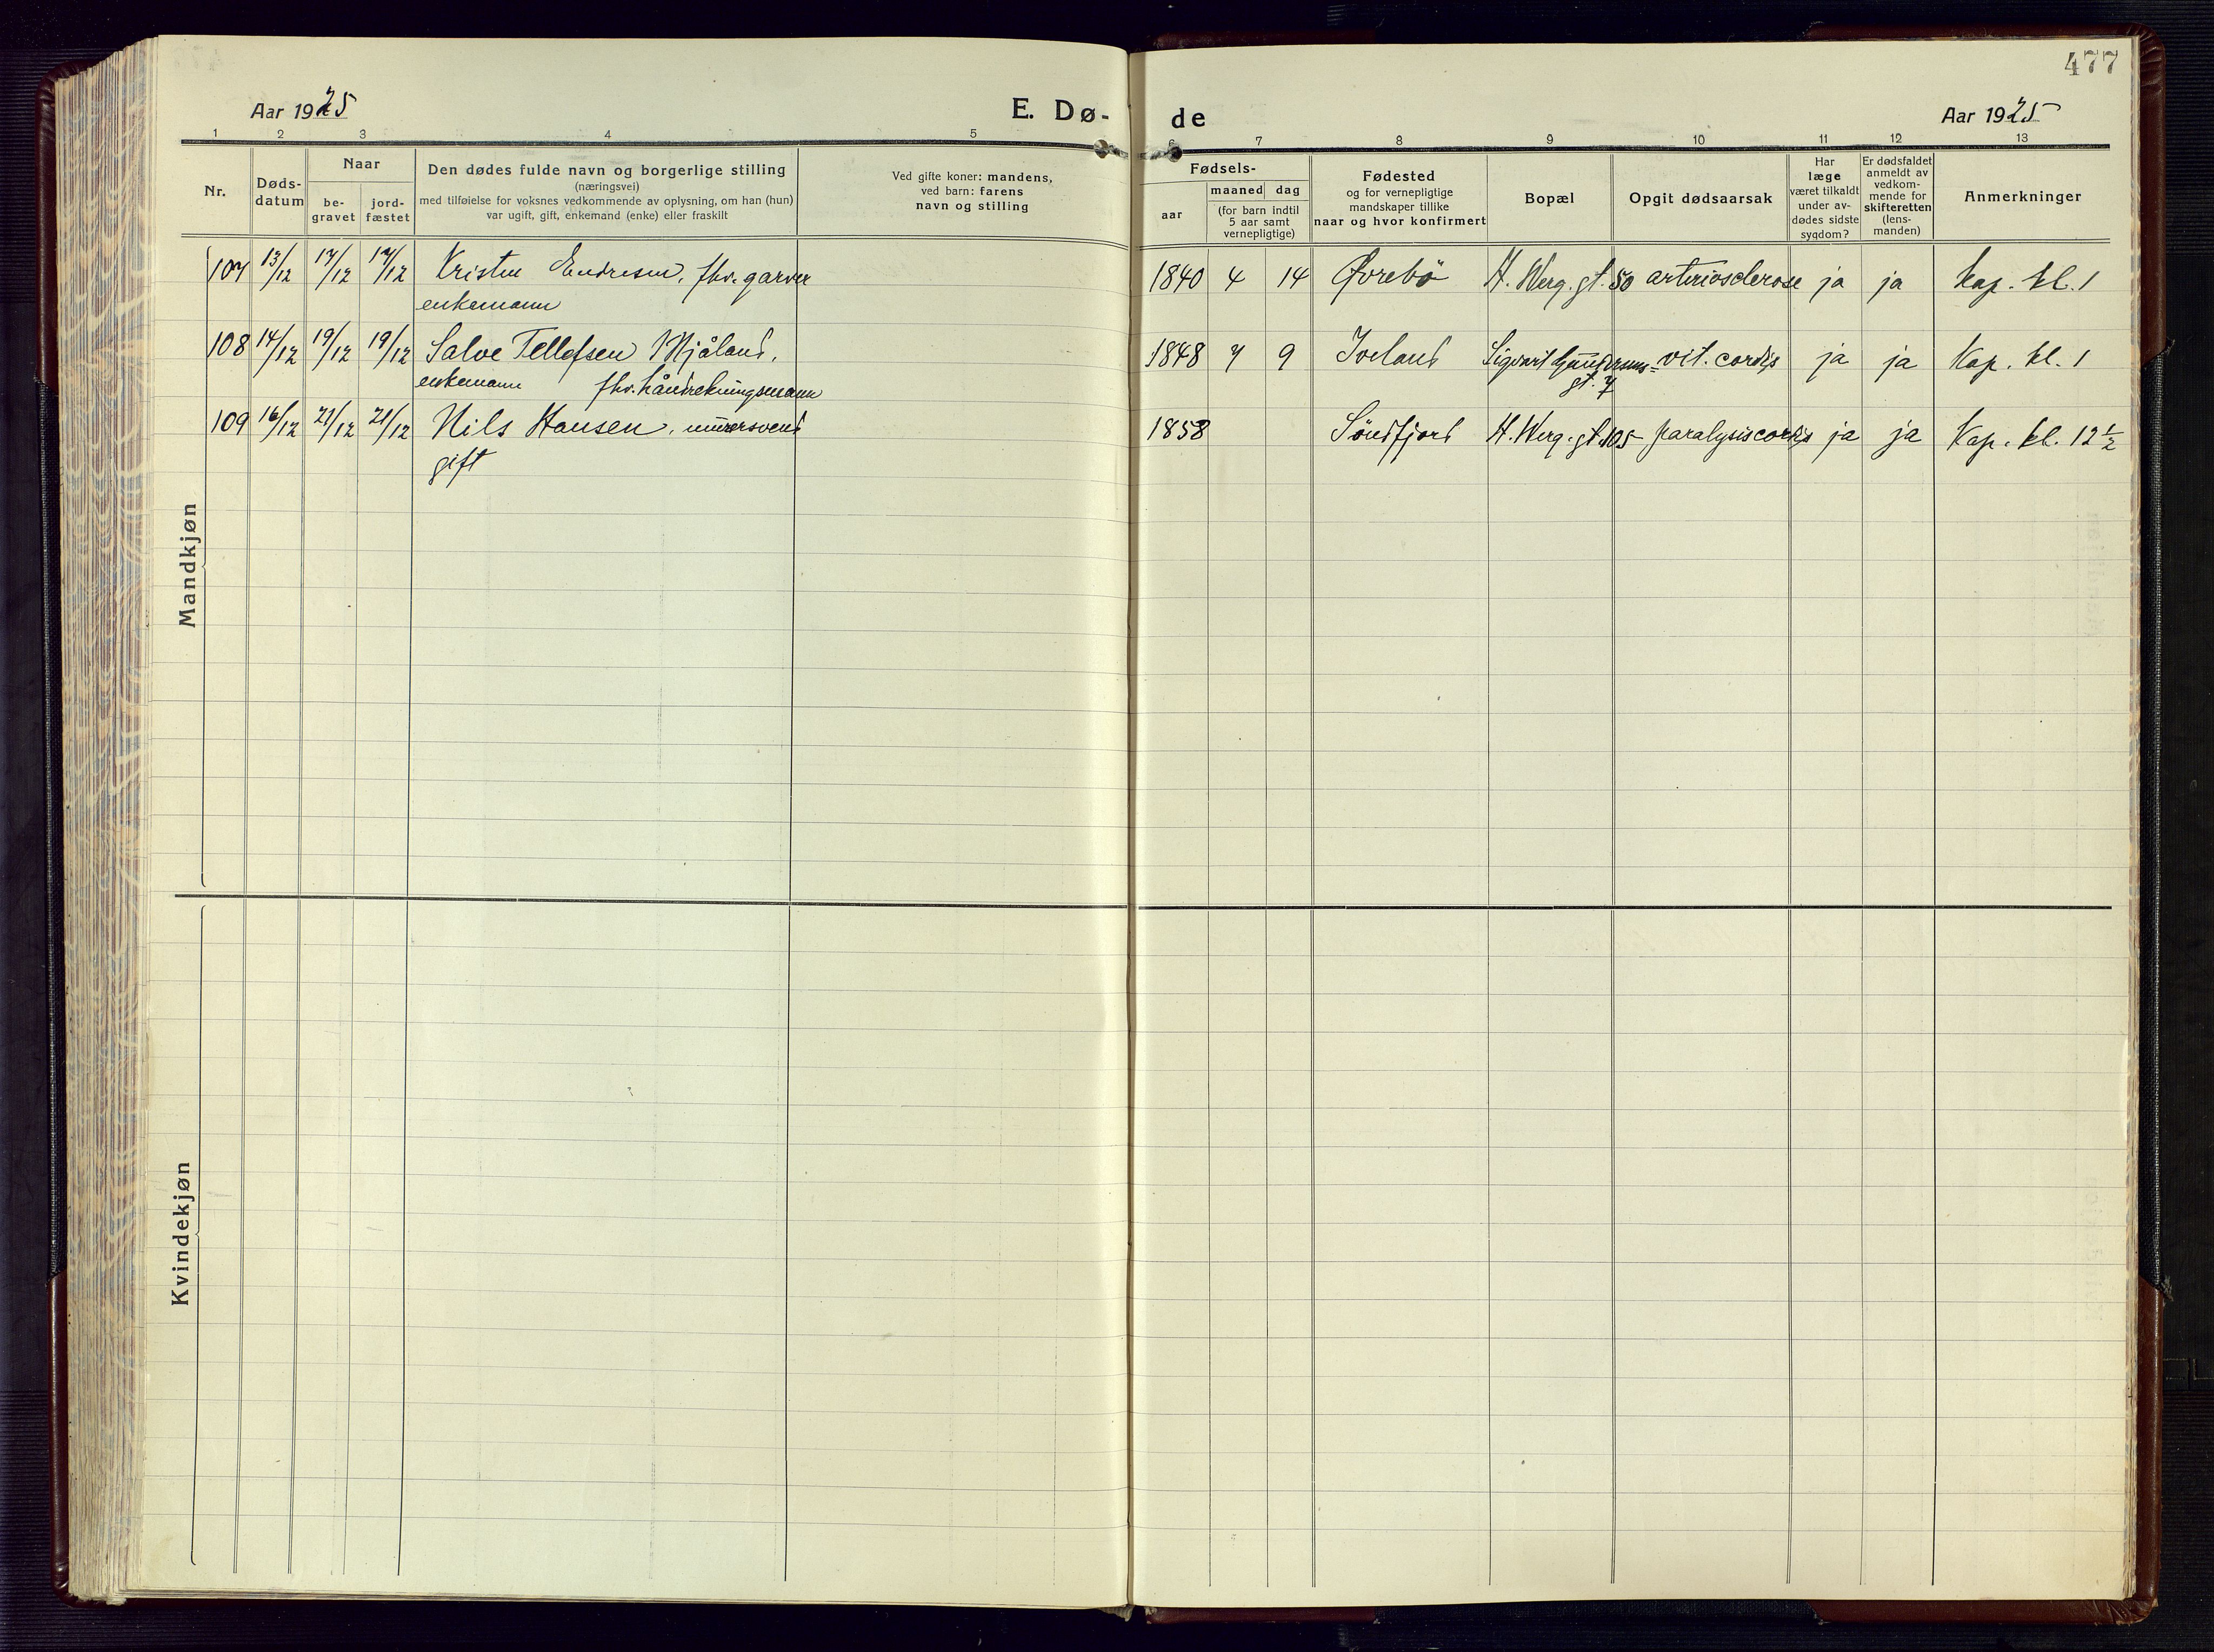 477
Aar 1925 E. Dø- de Aar 1925
1 2 3 4 5 6 7 8 9 10 11 12 13
Nr.
Døds-
datum
Naar
be-
gravet
jord-
fæstet
Den dødes fulde navn og borgerlige stilling
(næringsvei)
med tilføielse for voksnes vedkommende av oplysning, om han (hun)
var ugift, gift, enkemand (enke) eller fraskilt
Ved gifte koner: mandens,
ved barn: farens
navn og stilling
Fødsels-
aar
maaned dag
(for barn indtil
5 aar samt
vernepligtige)
Fødested
og for vernepligtige
mandskaper tillike
naar og hvor konfirmert
Bopæl
Opgit dødsaarsak
Har
læge
været tilkaldt
under av-
dødes sidste
sygdom?
Er dødsfaldet
anmeldt av
vedkom-
mende for
skifteretten
(lens-
manden)
Anmerkninger
Mandkjøn
107 13/12 17/12 17/12 Kristen Endresen, fhv. garver 1840 4 14 Øvrebö H. Werg. gt. 50 arteriosclerose ja ja Kap. kl. 1
enkemann
108 14/12 19/12 19/12 Salve Tellefsen Mjåland, 1848 7 9 Iveland Sigvart Gundersens= vit. cordis ja ja Kap. kl. 1
enkemann fhv. håndrekningsmann gt. 7
109 16/12 21/12 21/12 Nils Hansen, murersvend 1858 Söndfjord H. Werg. gt. 105 paralysis cordis ja ja Kap. kl. 12 1/2
gift
Kvindekjøn